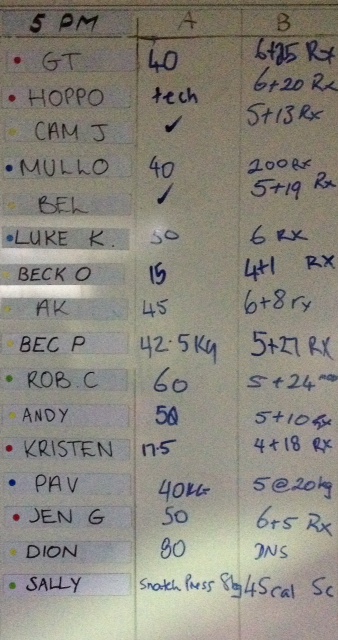 5 PM A B
GT 40 6+25 Rx
HOPPO tech 6+20 Rx
CAM J ✓ 5+13 Rx
MULLO 40 200 Rx
BEL ✓ 5+19 Rx
LUKE K. 50 6 RX
BECK O 15 4+1 RX
AK 45 6+8 rx
BEC P 42.5 Kg 5+27 RX
ROB.C 60 5+24
ANDY 50 5+10 Rx
KRISTEN 17.5 4+18 RX
PAV 40KG 5@20kg
JEN G 50 6+5 Rx
DION 80 DNS
SALLY Snatch Press 8kg 45cal Sc